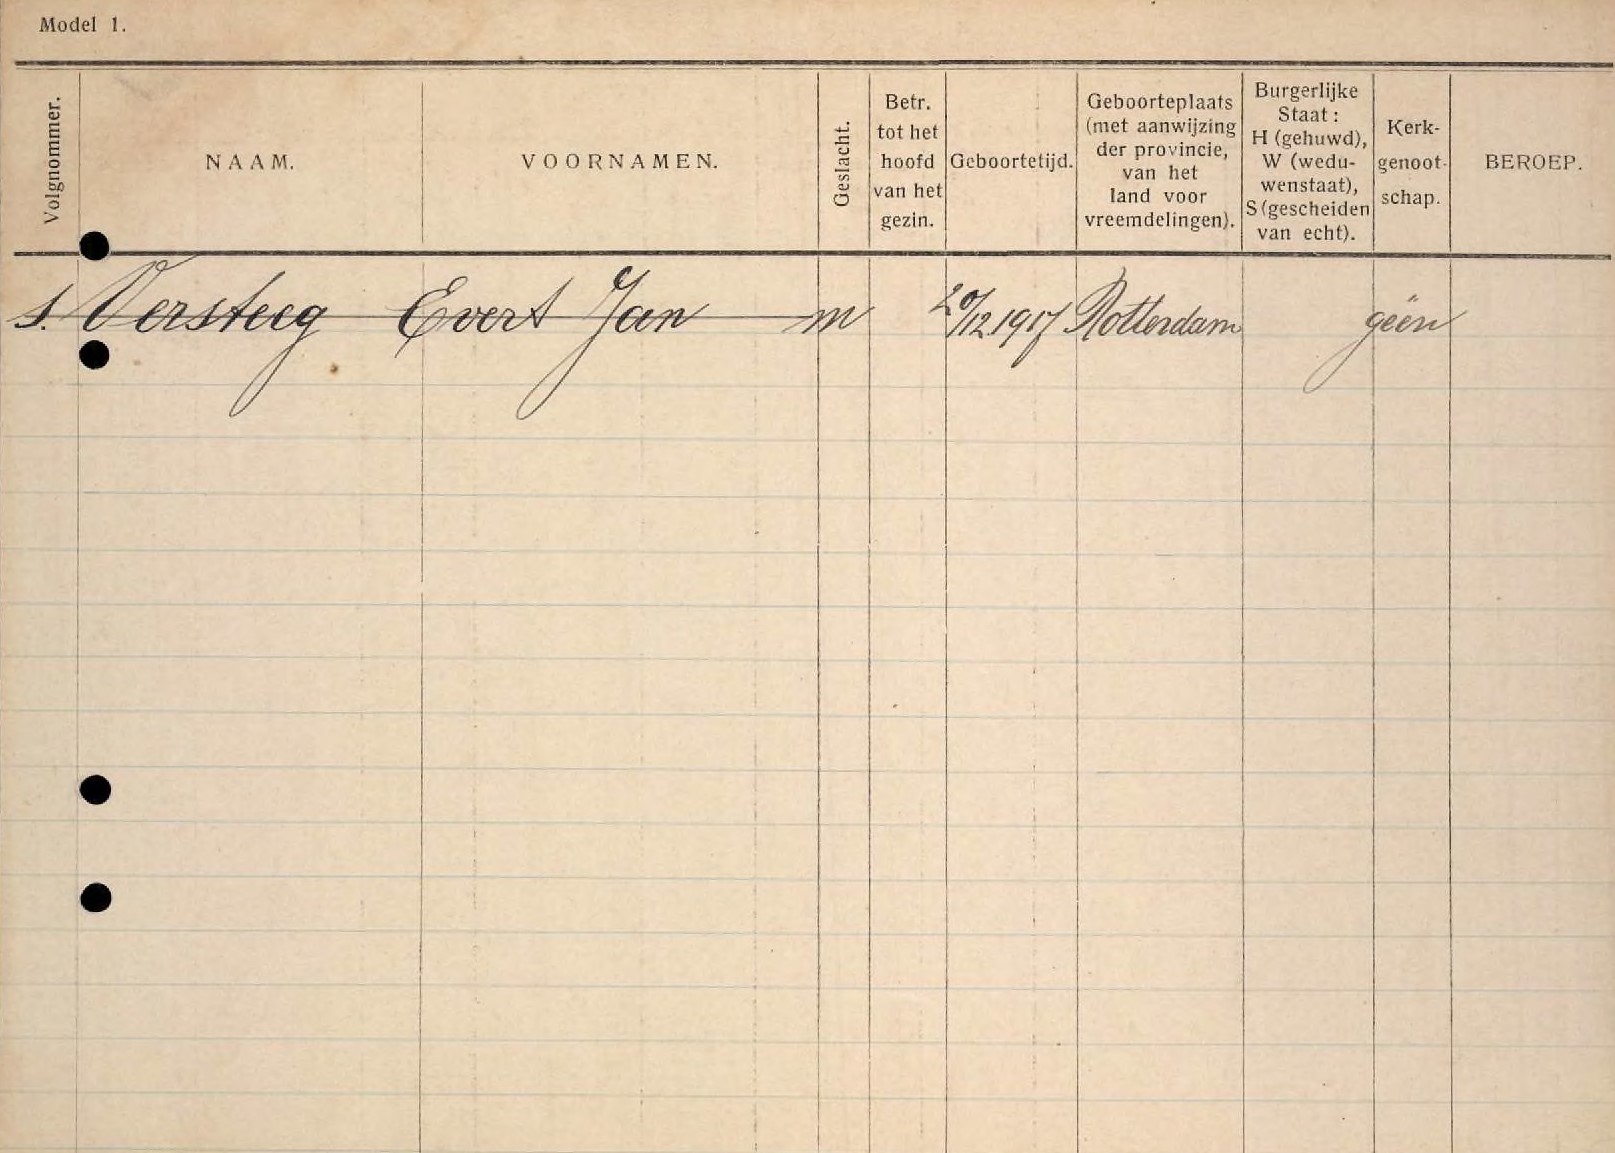 Model 1.
Volgnommer.
NAAM.
VOORNAMEN.
Geslacht.
Betr.
tot het
hoofd
van het
gezin.
Geboortetijd.
Geboorteplaats
(met aanwijzing
der provincie,
van het
land voor
vreemdelingen).
Burgerlijke
Staat:
H (gehuwd),
W (wedu-
wenstaat),
S (gescheiden
van echt).
Kerk-
genoot-
schap.
BEROEP.
1. Versteeg Evert Jan m 20/12 1917 Rotterdam geen